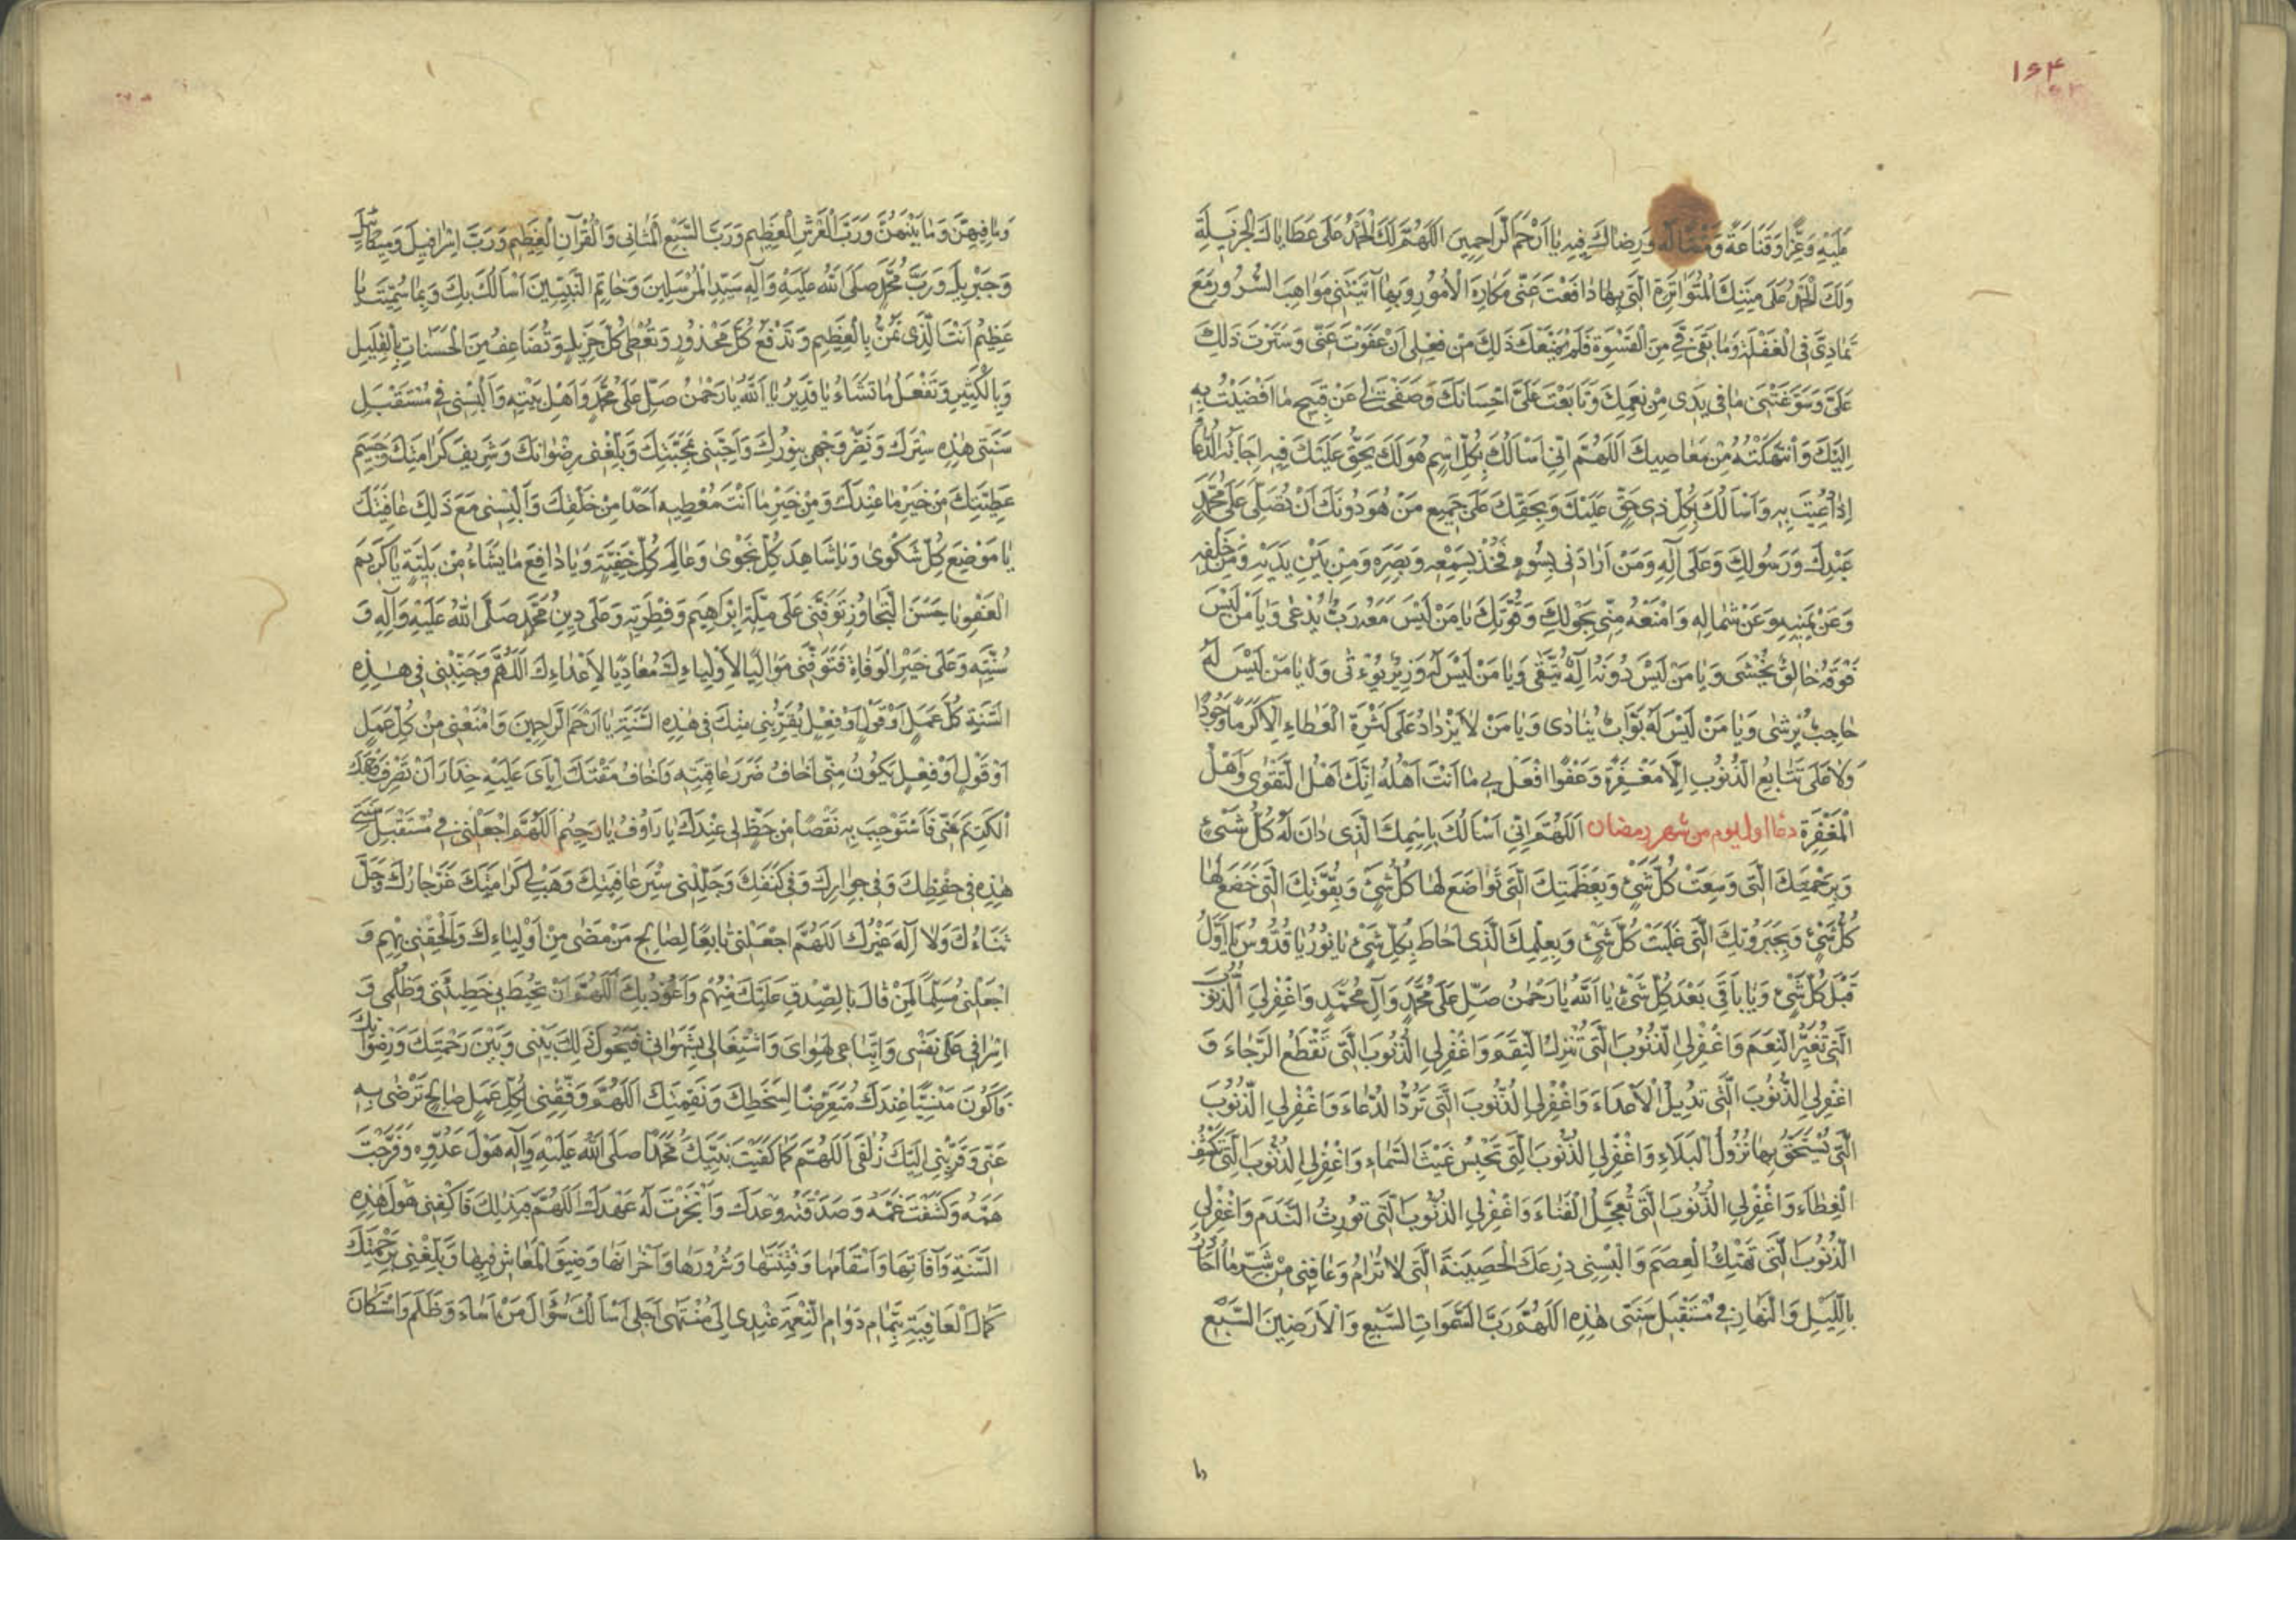 ۱۶۴
عَلَيْهِ وَعِزًّا وَقَنَاعَةً وَ وَرِضَاكَ فِيهِ يَا اَرْحَمَ الرَّاحِمِينَ اَللّٰهُمَّ لَكَ الْحَمْدُ عَلَى عَطَايَاكَ الْجَزِيلَةِ
وَلَكَ الْحَمْدُ عَلَى مِنَنِكَ الْمُتَوَاتِرَةِ الَّتِي بِهَا دَافَعْتَ عَنِّي مَكَارِهَ الْأُمُورِ وَبِهَا آتَيْتَنِي مَوَاهِبَ السُّرُورِ مَعَ
تَمَادِيَّ فِي الْغَفْلَةِ وَمَا بَقِيَ فِيَّ مِنَ الْقَسْوَةِ فَلَمْ يَمْنَعْكَ ذٰلِكَ مِنْ فِعْلِي اَنْ عَفَوْتَ عَنِّي وَسَتَرْتَ ذٰلِكَ
عَلَيَّ وَسَوَّغْتَنِي مَا فِي يَدَيَّ مِنْ نِعَمِكَ وَتَابَعْتَ عَلَيَّ اِحْسَانَكَ وَصَفَحْتَ لِي عَنْ قَبِيحِ مَا اَفْضَيْتُ بِهِ
اِلَيْكَ وَانْتَهَكْتُهُ مِنْ مَعَاصِيكَ اَللّٰهُمَّ اِنِّي اَسْاَلُكَ بِكُلِّ اسْمٍ هُوَ لَكَ يَحِقُّ عَلَيْكَ فِيهِ اِجَابَةُ الدُّعَاءِ
اِذَا دُعِيتَ بِهِ وَاَسْاَلُكَ بِكُلِّ ذِي حَقٍّ عَلَيْكَ وَبِحَقِّكَ عَلَى جَمِيعِ مَنْ هُوَ دُونَكَ اَنْ تُصَلِّيَ عَلَى مُحَمَّدٍ
عَبْدِكَ وَرَسُولِكَ وَعَلَى آلِهِ وَمَنْ اَرَادَنِي بِسُوءٍ فَخُذْ بِسَمْعِهِ وَبَصَرِهِ وَمِنْ بَيْنِ يَدَيْهِ وَمِنْ خَلْفِهِ
وَعَنْ يَمِينِهِ وَعَنْ شِمَالِهِ وَامْنَعْهُ مِنِّي بِحَوْلِكَ وَقُوَّتِكَ يَا مَنْ لَيْسَ مَعَهُ رَبٌّ يُدْعَى وَيَا مَنْ لَيْسَ
فَوْقَهُ خَالِقٌ يُخْشَى وَيَا مَنْ لَيْسَ دُونَهُ اِلٰهٌ يُتَّقَى وَيَا مَنْ لَيْسَ لَهُ وَزِيرٌ يُؤْتَى وَيَا مَنْ لَيْسَ لَهُ
حَاجِبٌ يُرْشَى وَيَا مَنْ لَيْسَ لَهُ بَوَّابٌ يُنَادَى وَيَا مَنْ لَا يَزْدَادُ عَلَى كَثْرَةِ الْعَطَاءِ اِلَّا كَرَمًا وَجُودًا
وَلَا عَلَى تَتَابُعِ الذُّنُوبِ اِلَّا مَغْفِرَةً وَعَفْوًا افْعَلْ بِي مَا اَنْتَ اَهْلُهُ اِنَّكَ اَهْلُ التَّقْوَى وَاَهْلُ
الْمَغْفِرَةِ دعاء اول يوم من شهر رمضان اَللّٰهُمَّ اِنِّي اَسْاَلُكَ بِاسْمِكَ الَّذِي دَانَ لَهُ كُلُّ شَيْءٍ
وَبِرَحْمَتِكَ الَّتِي وَسِعَتْ كُلَّ شَيْءٍ وَبِعَظَمَتِكَ الَّتِي تَوَاضَعَ لَهَا كُلُّ شَيْءٍ وَبِقُوَّتِكَ الَّتِي خَضَعَ لَهَا
كُلُّ شَيْءٍ وَبِجَبَرُوتِكَ الَّتِي غَلَبَتْ كُلَّ شَيْءٍ وَبِعِلْمِكَ الَّذِي اَحَاطَ بِكُلِّ شَيْءٍ يَا نُورُ يَا قُدُّوسُ يَا اَوَّلُ
قَبْلَ كُلِّ شَيْءٍ وَيَا بَاقِي بَعْدَ كُلِّ شَيْءٍ يَا اَللّٰهُ يَا رَحْمٰنُ صَلِّ عَلَى مُحَمَّدٍ وَآلِ مُحَمَّدٍ وَاغْفِرْ لِيَ الذُّنُوبَ
الَّتِي تُغَيِّرُ النِّعَمَ وَاغْفِرْ لِيَ الذُّنُوبَ الَّتِي تُنْزِلُ النِّقَمَ وَاغْفِرْ لِيَ الذُّنُوبَ الَّتِي تَقْطَعُ الرَّجَاءَ وَ
اغْفِرْ لِيَ الذُّنُوبَ الَّتِي تُدِيلُ الْاَعْدَاءَ وَاغْفِرْ لِيَ الذُّنُوبَ الَّتِي تَرُدُّ الدُّعَاءَ وَاغْفِرْ لِيَ الذُّنُوبَ
الَّتِي يُسْتَحَقُّ بِهَا نُزُولُ الْبَلَاءِ وَاغْفِرْ لِيَ الذُّنُوبَ الَّتِي تَحْبِسُ غَيْثَ السَّمَاءِ وَاغْفِرْ لِيَ الذُّنُوبَ الَّتِي تَكْشِفُ
الْغِطَاءَ وَاغْفِرْ لِيَ الذُّنُوبَ الَّتِي تُعَجِّلُ الْفَنَاءَ وَاغْفِرْ لِيَ الذُّنُوبَ الَّتِي تُورِثُ النَّدَمَ وَاغْفِرْ لِيَ
الذُّنُوبَ الَّتِي تَهْتِكُ الْعِصَمَ وَاَلْبِسْنِي دِرْعَكَ الْحَصِينَةَ الَّتِي لَا تُرَامُ وَعَافِنِي مِنْ شَرِّ مَا اُحَاذِرُ
بِاللَّيْلِ وَالنَّهَارِ فِي مُسْتَقْبَلِ سَنَتِي هٰذِهِ اَللّٰهُمَّ رَبَّ السَّمٰوَاتِ السَّبْعِ وَالْاَرَضِينَ السَّبْعِ
وَمَا فِيهِنَّ وَمَا بَيْنَهُنَّ وَرَبَّ الْعَرْشِ الْعَظِيمِ وَرَبَّ السَّبْعِ الْمَثَانِي وَالْقُرْآنِ الْعَظِيمِ وَرَبَّ اِسْرَافِيلَ وَمِيكَائِيلَ
وَجَبْرَئِيلَ وَرَبَّ مُحَمَّدٍ صَلَّى اللهُ عَلَيْهِ وَآلِهِ سَيِّدِ الْمُرْسَلِينَ وَخَاتَمِ النَّبِيِّينَ اَسْاَلُكَ بِكَ وَبِمَا سَمَّيْتَ يَا
عَظِيمُ اَنْتَ الَّذِي تَمُنُّ بِالْعَظِيمِ وَتَدْفَعُ كُلَّ مَحْذُورٍ وَتُعْطِي كُلَّ جَزِيلٍ وَتُضَاعِفُ مِنَ الْحَسَنَاتِ بِالْقَلِيلِ
وَبِالْكَثِيرِ وَتَفْعَلُ مَا تَشَاءُ يَا قَدِيرُ يَا اَللّٰهُ يَا رَحْمٰنُ صَلِّ عَلَى مُحَمَّدٍ وَاَهْلِ بَيْتِهِ وَاَلْبِسْنِي فِي مُسْتَقْبَلِ
سَنَتِي هٰذِهِ سِتْرَكَ وَنَضِّرْ وَجْهِي بِنُورِكَ وَاَحِبَّنِي بِمَحَبَّتِكَ وَبَلِّغْنِي رِضْوَانَكَ وَشَرِيفَ كَرَامَتِكَ وَجَسِيمَ
عَطِيَّتِكَ مِنْ خَيْرِ مَا عِنْدَكَ وَمِنْ خَيْرِ مَا اَنْتَ مُعْطِيهِ اَحَدًا مِنْ خَلْقِكَ وَاَلْبِسْنِي مَعَ ذٰلِكَ عَافِيَتَكَ
يَا مَوْضِعَ كُلِّ شَكْوٰى وَيَا شَاهِدَ كُلِّ نَجْوٰى وَعَالِمَ كُلِّ خَفِيَّةٍ وَيَا دَافِعَ مَا يَشَاءُ مِنْ بَلِيَّةٍ يَا كَرِيمَ
الْعَفْوِ يَا حَسَنَ التَّجَاوُزِ تَوَفَّنِي عَلَى مِلَّةِ اِبْرَاهِيمَ وَفِطْرَتِهِ وَعَلَى دِينِ مُحَمَّدٍ صَلَّى اللهُ عَلَيْهِ وَآلِهِ وَ
سُنَّتِهِ وَعَلَى خَيْرِ الْوَفَاةِ فَتَوَفَّنِي مَوَالِيًا لِاَوْلِيَاءِكَ مُعَادِيًا لِاَعْدَاءِكَ اَللّٰهُمَّ وَجَنِّبْنِي فِي هٰذِهِ
السَّنَةِ كُلَّ عَمَلٍ اَوْ قَوْلٍ اَوْ فِعْلٍ يُقَرِّبُنِي مِنْكَ فِي هٰذِهِ السَّنَةِ يَا اَرْحَمَ الرَّاحِمِينَ وَامْنَعْنِي مِنْ كُلِّ عَمَلٍ
اَوْ قَوْلٍ اَوْ فِعْلٍ يَكُونُ مِنِّي اَخَافُ ضَرَرَ عَاقِبَتِهِ وَاَخَافُ مَقْتَكَ اِيَّايَ عَلَيْهِ حِذَارَ اَنْ تَصْرِفَ وَجْهَكَ
الْكَرِيمَ عَنِّي فَاَسْتَوْجِبَ بِهِ نَقْصًا مِنْ حَظٍّ لِي عِنْدَكَ يَا رَؤُوفُ يَا رَحِيمُ اَللّٰهُمَّ اجْعَلْنِي فِي مُسْتَقْبَلِ سَنَتِي
هٰذِهِ فِي حِفْظِكَ وَفِي جِوَارِكَ وَفِي كَنَفِكَ وَجَلِّلْنِي سِتْرَ عَافِيَتِكَ وَهَبْ لِي كَرَامَتَكَ عَزَّ جَارُكَ وَجَلَّ
ثَنَاءُكَ وَلَا اِلٰهَ غَيْرُكَ اَللّٰهُمَّ اجْعَلْنِي تَابِعًا لِصَالِحِ مَنْ مَضَى مِنْ اَوْلِيَاءِكَ وَاَلْحِقْنِي بِهِمْ وَ
اجْعَلْنِي مُسَلِّمًا لِمَنْ قَالَ بِالصِّدْقِ عَلَيْكَ مِنْهُمْ وَاَعُوذُ بِكَ اَللّٰهُمَّ اَنْ تُحِيطَ بِي خَطِيئَتِي وَظُلْمِي وَ
اِسْرَافِي عَلَى نَفْسِي وَاتِّبَاعِي لِهَوَايَ وَاشْتِغَالِي بِشَهَوَاتِي فَيَحُولَ ذٰلِكَ بَيْنِي وَبَيْنَ رَحْمَتِكَ وَرِضْوَانِكَ
فَاَكُونَ مَنْسِيًّا عِنْدَكَ مُتَعَرِّضًا لِسَخَطِكَ وَنَقِمَتِكَ اَللّٰهُمَّ وَفِّقْنِي لِكُلِّ عَمَلٍ صَالِحٍ تَرْضَى بِهِ
عَنِّي وَقَرِّبْنِي اِلَيْكَ زُلْفَى اَللّٰهُمَّ كَمَا كَفَيْتَ نَبِيَّكَ مُحَمَّدًا صَلَّى اللهُ عَلَيْهِ وَآلِهِ هَوْلَ عَدُوِّهِ وَفَرَّجْتَ
هَمَّهُ وَكَشَفْتَ غَمَّهُ وَصَدَقْتَهُ وَعْدَكَ وَاَنْجَزْتَ لَهُ عَهْدَكَ اَللّٰهُمَّ بِذٰلِكَ فَاكْفِنِي هَوْلَ هٰذِهِ
السَّنَةِ وَآفَاتِهَا وَاَسْقَامَهَا وَفِتْنَتَهَا وَشُرُورَهَا وَاَحْزَانَهَا وَضِيقَ الْمَعَاشِ فِيهَا وَبَلِّغْنِي بِرَحْمَتِكَ
كَمَالَ الْعَافِيَةِ بِتَمَامِ دَوَامِ النِّعْمَةِ عِنْدِي اِلَى مُنْتَهَى اَجَلِي اَسْاَلُكَ سُؤَالَ مَنْ اَسَاءَ وَظَلَمَ وَاسْتَكَانَ